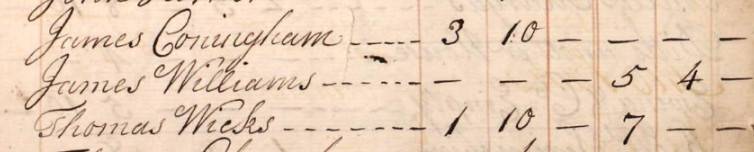 James Coningham ----- 3 10 — — — —
James Williams ------- — — — 5 4 —
Thomas Wicks --------- 1 10 — 7 — —